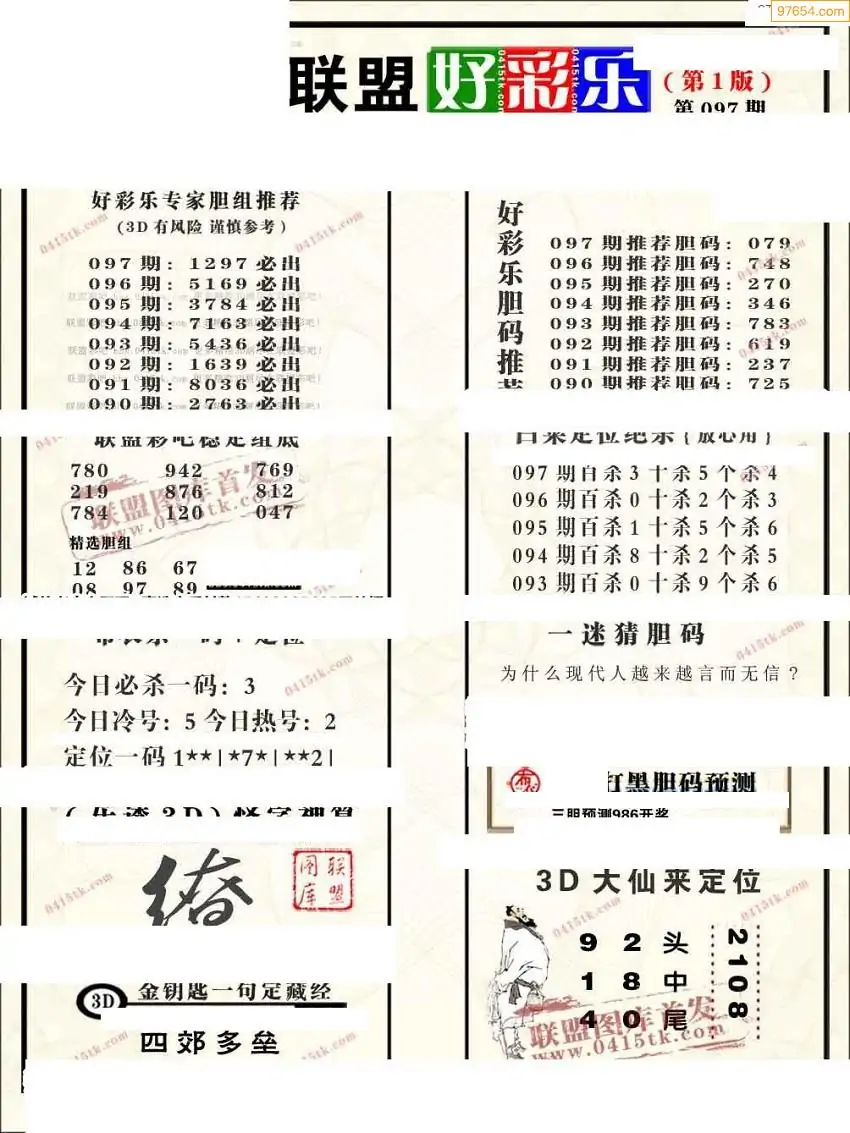 97654.com
联盟好彩乐(第1版)
第097期
好彩乐专家胆组推荐
(3D有风险 谨慎参考)
097期: 1297必出
096期: 5169必出
095期: 3784必出
094期: 7163必出
093期: 5436必出
092期: 1639必出
091期: 8036必出
090期: 2763必出
联盟彩吧稳定组底
780 942 769
219 876 812
784 120 047
精选胆组
12 86 67
08 97 89
今日必杀一码: 3
今日冷号: 5 今日热号: 2
定位一码 1**|*7*|**2|
联盟
图库
3D 金钥匙一句定藏经
四郊多垒
好彩乐胆码推荐
097期推荐胆码: 079
096期推荐胆码: 748
095期推荐胆码: 270
094期推荐胆码: 346
093期推荐胆码: 783
092期推荐胆码: 619
091期推荐胆码: 237
090期推荐胆码: 725
097期百杀3十杀5个杀4
096期百杀0十杀2个杀3
095期百杀1十杀5个杀6
094期百杀8十杀2个杀5
093期百杀0十杀9个杀6
一迷猜胆码
为什么现代人越来越言而无信?
打黑胆码预测
三胆预测986开奖
3D大仙来定位
9 2 头
1 8 中
4 0 尾
2108
联盟图库首发
www.0415tk.com